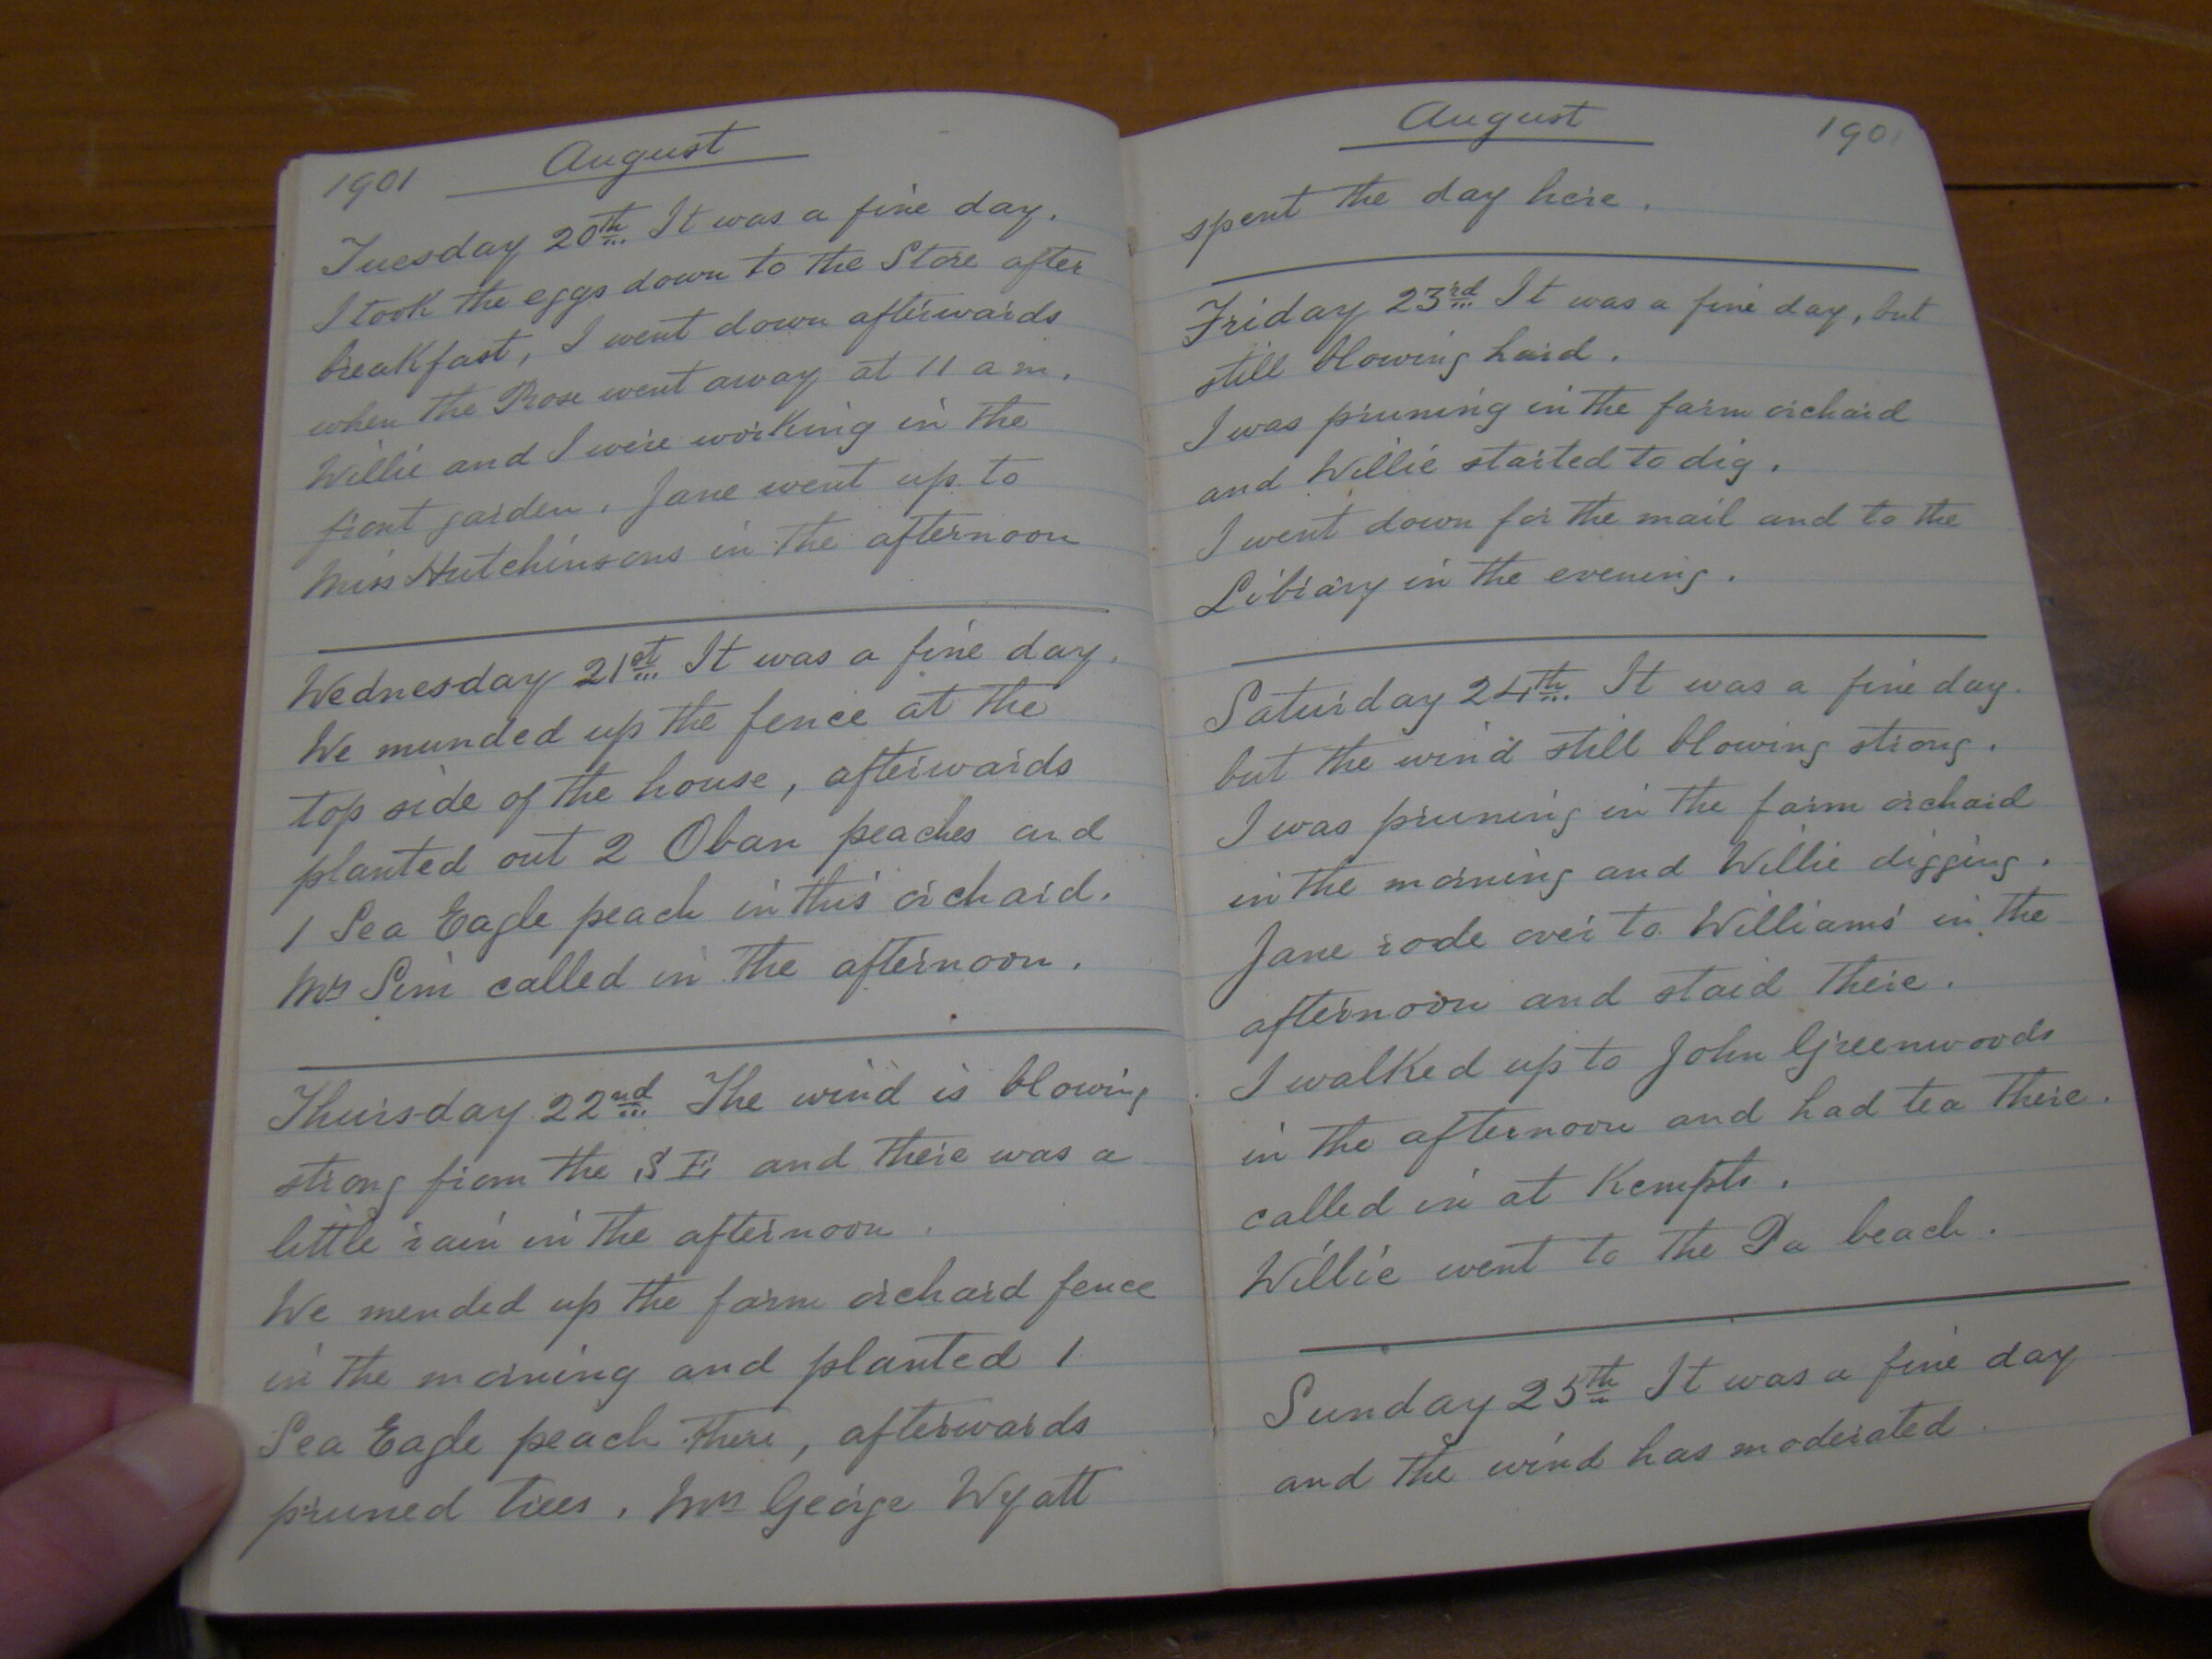 1901 August
Tuesday 20th It was a fine day.
I took the eggs down to the Store after
breakfast, I went down afterwards
when the Rose went away at 11 a m.
Willie and I were working in the
front garden. Jane went up to
Miss Hutchinsons in the afternoon
Wednesday 21st It was a fine day.
We munded up the fence at the
top side of the house, afterwards
planted out 2 Oban peaches and
1 Sea Eagle peach in this orchard.
Mrs Sim called in the afternoon.
Thursday 22nd The wind is blowing
strong from the S E and there was a
little rain in the afternoon.
We mended up the farm orchard fence
in the morning and planted 1
Sea Eagle peach there, afterwards
pruned trees. Mrs George Wyatt
August 1901
spent the day here.
Friday 23rd It was a fine day, but
still blowing hard.
I was pruning in the farm orchard
and Willie started to dig.
I went down for the mail and to the
Library in the evening.
Saturday 24th It was a fine day.
but the wind still blowing strong.
I was pruning in the farm orchard
in the morning and Willie digging.
Jane rode over to Williams' in the
afternoon and staid there.
I walked up to John Greenwoods
in the afternoon and had tea there.
called in at Kempts.
Willie went to the Pa beach.
Sunday 25th It was a fine day
and the wind has moderated